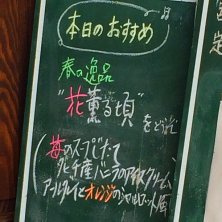 本日のおすすめ
春の逸品
"花薫る頃"をどうぞ
苺のスープじたて
タヒチ産バニラのアイスクリーム
アールグレイとオレンジのシャルロット風
定